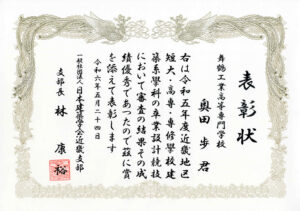 表彰状
舞鶴工業高等専門学校
奥田 歩 君
右は令和五年度近畿地区
短大・高専・専修学校建
築系学科の卒業設計競技
において審査の結果その成
績優秀であったので茲に賞
を添えて表彰します
令和六年五月二十四日
一般社団法人日本建築学会近畿支部
支部長 林 康裕